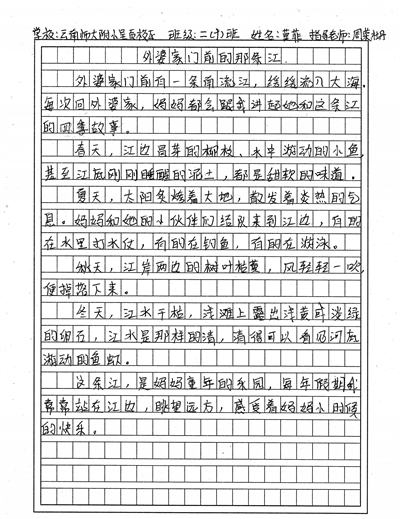 学校:云南师大附小呈贡校区 班级:二(7)班 姓名:董菲 指导老师:周业丹
外婆家门前的那条江
外婆家门前有一条南流江,缓缓流入大海。
每次回外婆家,妈妈都会跟我讲起她和这条江
的四季故事。
春天,江边吕芽的柳枝、水中游动的小鱼,
甚至江底刚刚睡醒的泥土,都是甜软的味道。
夏天,太阳炙烤着大地,散发着炎热的气
息。妈妈和她的小伙伴们结队来到江边,有的
在水里打水仗,有的在钓鱼,有的在游泳。
秋天,江岸两边的树叶枯黄,风轻轻一吹,
便掉落下来。
冬天,江水干枯,浅滩上露出浅黄或淡绿
的细石,江水是那样的清,清得可以看见河底
游动的鱼虾。
这条江,是妈妈童年的乐园,每年假期我
常常站在江边,眺望远方,感受着妈妈小时候
的快乐。